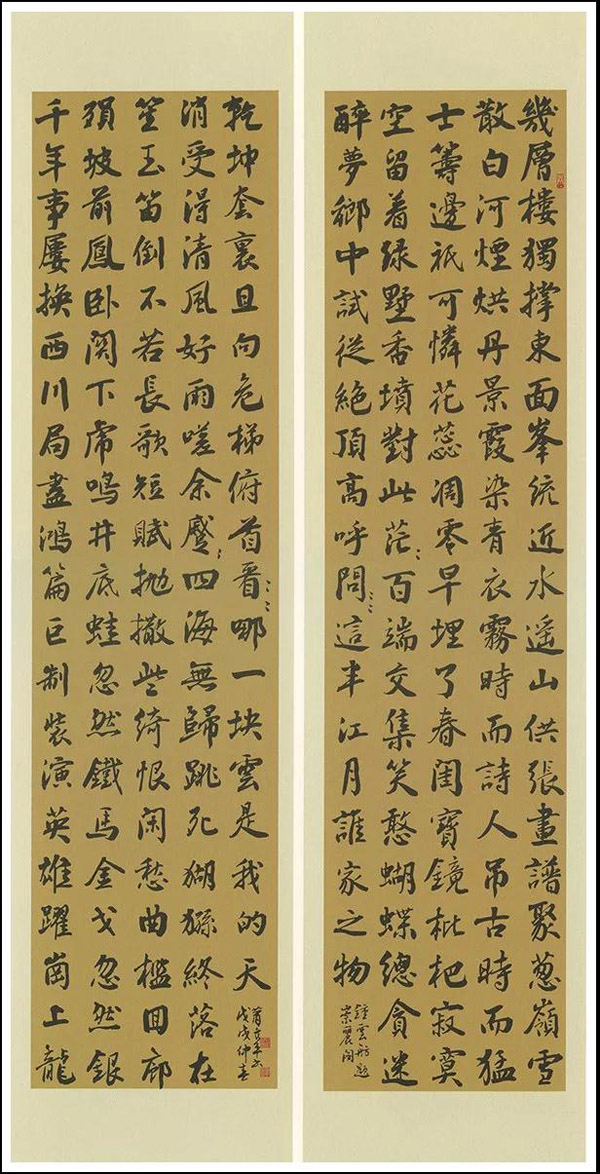 幾層樓獨撐東面峯統近水遥山供張畫譜聚葱嶺雪
散白河煙烘丹景霞染青衣霧時而詩人吊古時而猛
士籌邊祇可憐花蕊凋零早埋了春閨寶鏡枇杷寂寞
空留着绿墅香墳對此茫〻百端交集笑憨蝴蝶總貪迷
醉夢鄉中試從絶頂高呼問〻〻這半江月誰家之物
鍾雲舫題
崇麗閣
千年事屢換西川局盡鴻篇巨制裝演英雄躍崗上龍
殞坡前鳳卧関下虎鳴井底蛙忽然鐵馬金戈忽然銀
笙玉笛倒不若長歌短賦抛撒些绮恨闲愁曲檻回廊
消受得清風好雨嗟余蹙〻四海無歸跳死猢猻終落在
乾坤套裏且向危梯俯首看〻〻哪一块雲是我的天
戊戌仲春